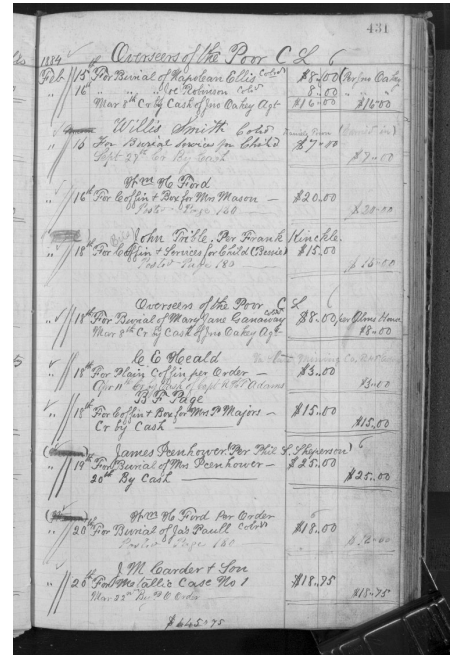 431
1884 Overseers of the Poor C L
Feb 15 For Burial of Napolean Ellis Cold $8.00 (Per Jno Oakey
16th " " " Joe Robinson Cold 8.00 " " "
Mar 8th Cr by Cash of Jno Oakey Agt $16.00 $16.00
Willis Smith Cold
16 For Burial Services for Child $7.00
Sept 27th Cr By Cash $7.00
Wm H Ford
16th For Coffin & Box for Mrs Mason — $20.00
Posted Page 160 $20.00
John Trible. Per Frank Kinckle.
18th For Coffin & Services for Child (Bessie) $15.00
Posted Page 180 $15.00
Overseers of the Poor C L
18th For Burial of Mary Jane Ganaway Cold $8.00 per Alms House
Mar 8th Cr by Cash of Jno Oakey Agt $8.00
C C Heald
18th For Plain Coffin per Order — $3.00
Apr 11th Cr by Cash of Capt Adams $3.00
B F Page
18th For Coffin & Box for Mrs Majors — $15.00
Cr by Cash $15.00
James Peenhower (Per Phil S. Sheperson)
19th For Burial of Mrs Peenhower — $25.00
20th By Cash $25.00
Wm H Ford Per Order
20th For Burial of Jas Paull Cold $18.00
Posted Page 160
J M Carder & Son
20th For Metallic Case No 1 $18.75
Mar 22nd By P O Order $18.75
$645.75